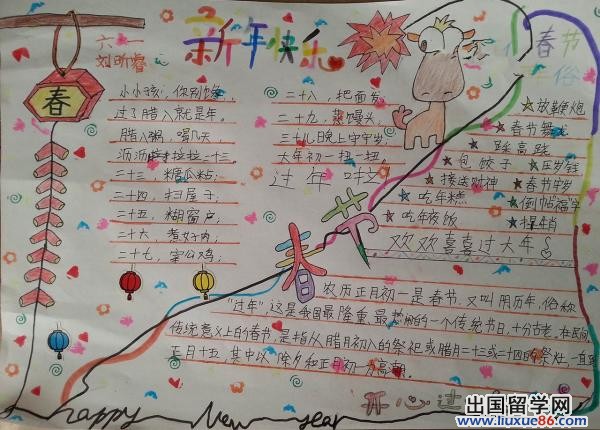 新年快乐
六一
刘昕睿
春
小小孩,你别馋,
过了腊八就是年。
腊八粥,喝几天,
沥沥拉拉二十三。
二十三,糖瓜粘;
二十四,扫房子;
二十五,糊窗户;
二十六,煮
二十七,宰公鸡;
二十八,把面发
二十九,蒸馒头,
三十儿晚上守宁岁
大年初一扭一扭。
过年
春节
俗
放鞭炮
春节
踩高跷
包饺子
压岁钱
接送财神
春节守岁
吃年糕
倒帖"福"字
吃年夜饭
欢欢喜喜过大年
春节
农历正月初一是春节,又叫阴历年,俗称
"过年"这是我国最隆重、最热闹的一个传统节日,十分古老。在民间,
传统意义上的春节,是指从腊月初八的祭祀或腊月二十三或二十四的祭灶,一直到
正月十五,其中以除夕和正月初一为高潮。
happy New year
开心过
出国留学网
www.liuxue86.com